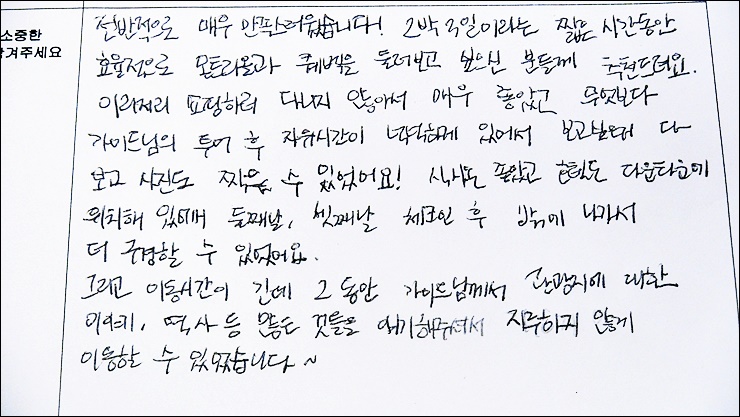 소중한
남겨주세요
전반적으로 매우 만족스러웠습니다! 2박 3일이라는 짧은 시간동안
효율적으로 몬트리올과 퀘벡을 둘러보고 싶으신 분들께 추천드려요.
이리저리 쇼핑하러 다니지 않아서 매우 좋았고 무엇보다
가이드님의 투어 후 자유시간이 넉넉하게 있어서 보고싶은거 다
보고 사진도 찍을 수 있었어요! 식사도 좋았고 호텔도 다운타운에
위치해 있어서 둘째날, 셋째날 체크인 후 밖에 나가서
더 구경할 수 있었어요.
그리고 이동시간이 긴데 그 동안 가이드님께서 관광지에 대한
이야기, 역사 등 많은 것들을 얘기해주셔서 지루하지 않게
이동할 수 있었습니다~